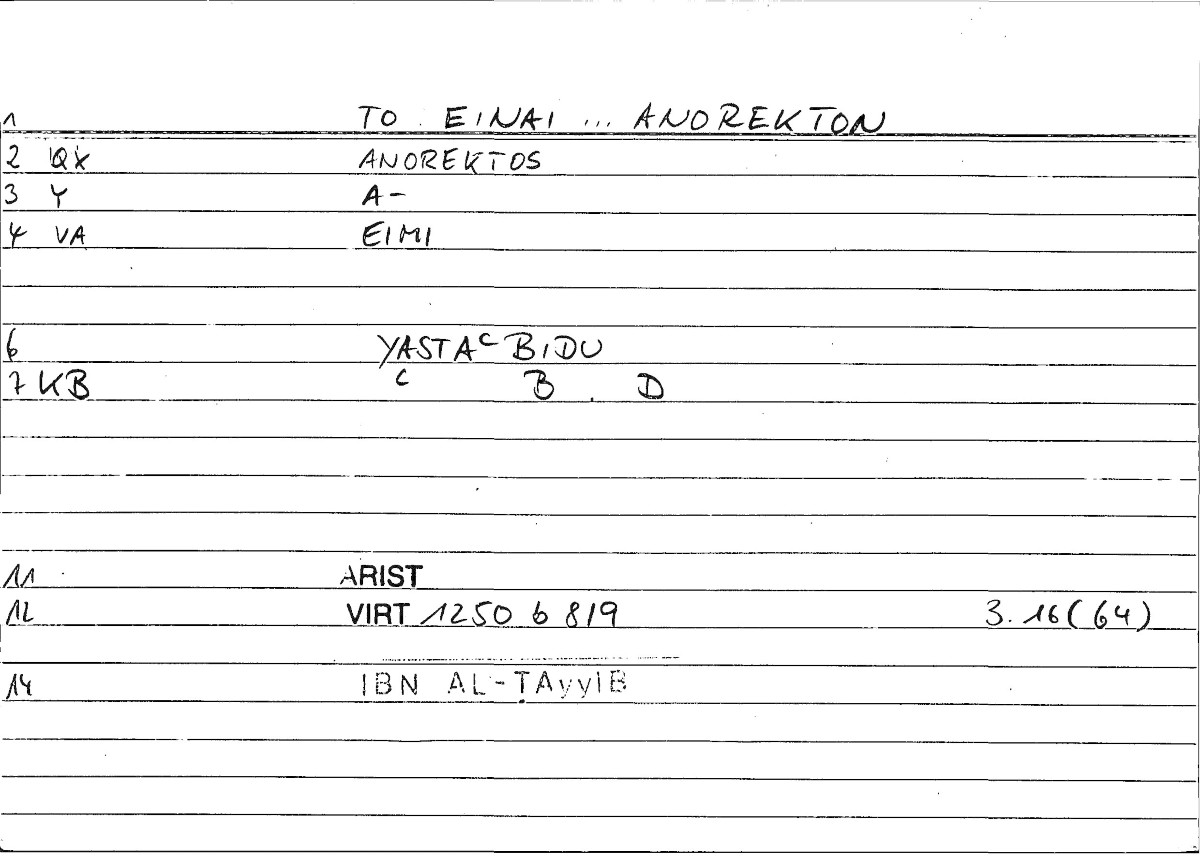 1 TO EINAI ... ANOREKTON
2 QX ANOREKTOS
3 Y A-
4 VA EIMI
6 YASTAᶜBIDU
7 KB ᶜ B D
11 ARIST
12 VIRT 1250 b 8/9 3. 16 (64)
14 IBN AL-ṬAyyIB